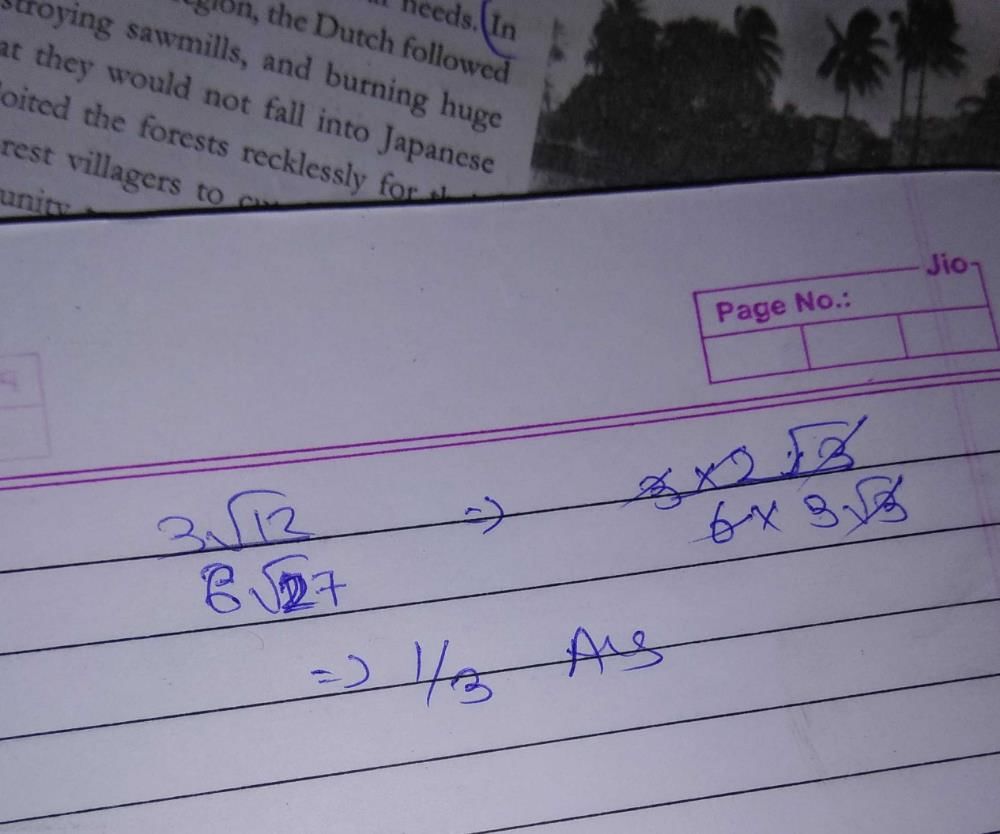 needs. (In
egion, the Dutch followed
stroying sawmills, and burning huge
at they would not fall into Japanese
loited the forests recklessly for
rest villagers to
unity
Jio
Page No.:
3√12 => 3 × 2 √3
6√27 6 × 3√3
=> 1/3 Ans